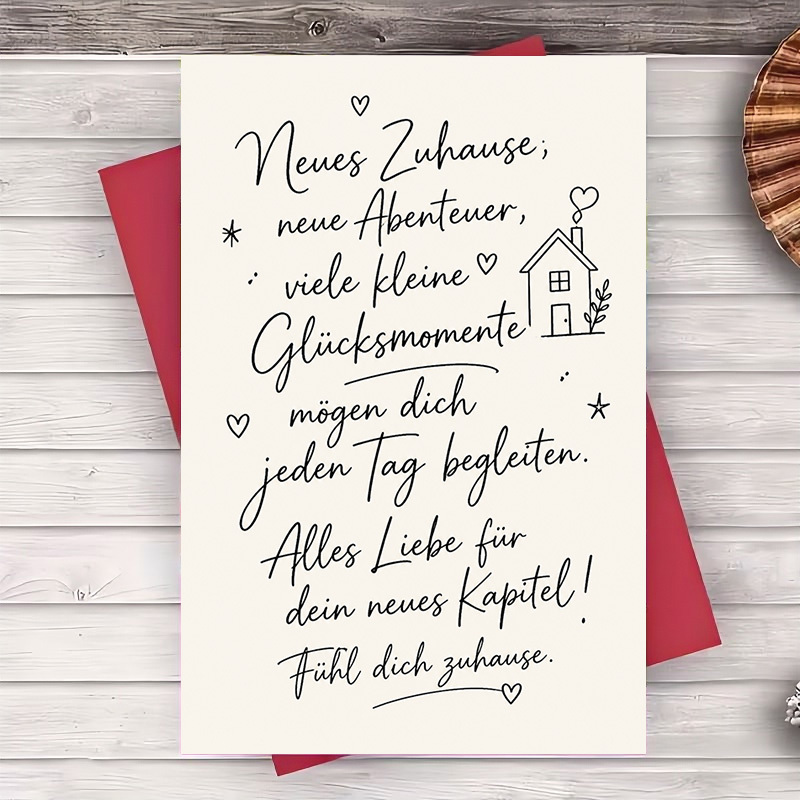 Neues Zuhause;
neue Abenteuer,
viele kleine
Glücksmomente
mögen dich
jeden Tag begleiten.
Alles Liebe für
dein neues Kapitel!
Fühl dich zuhause.